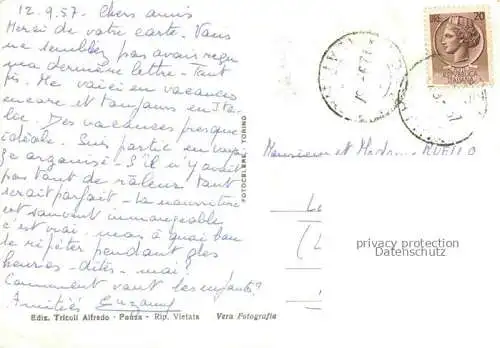 12.9.57. Chers amis
Merci de votre carte. Vous
ne semblez pas avoir reçu
ma dernière lettre - Tant
pis. Me voici en vacances
encore et toujours en Ita-
lie. Des vacances presque
idéale. Suis partie en voya-
ge organisé - S'il n'y avait
pas tant de râleurs, tout
serait parfait - La nourriture
est souvent immangeable
c'est vrai. mais à quoi bon
le répéter pendant des
heures - dites - moi?
Comment vont les enfants?
Amitiés Suzanne
Ediz. Tricoli Alfredo - Panza - Rip. Vietata Vera Fotografia
FOTOCELERE. TORINO
20
Monsieur et Madame
privacy protection
Datenschutz